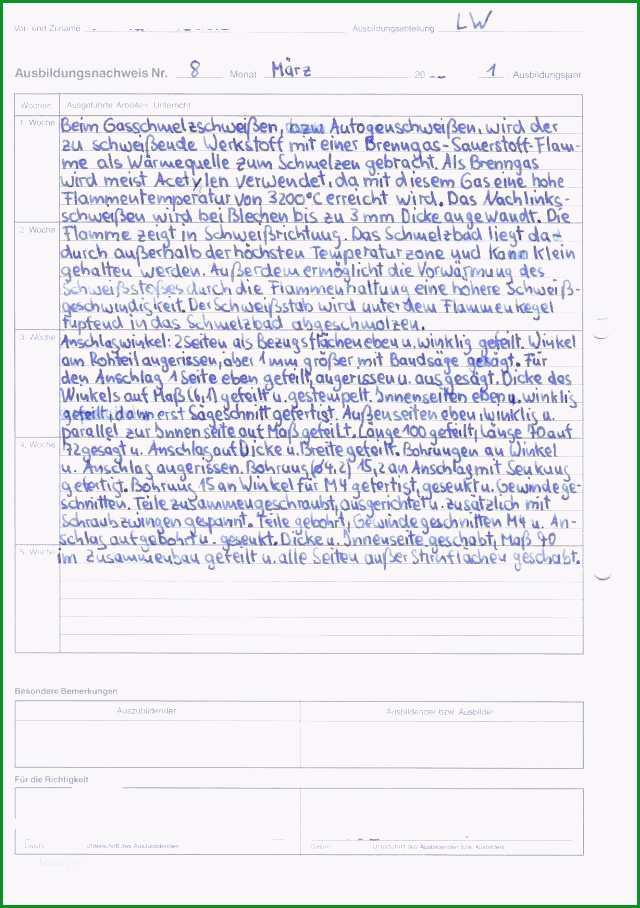 Vor- und Zuname
Ausbildungsabteilung LW
Ausbildungsnachweis Nr. 8 Monat März 20 -- 1 Ausbildungsjahr
Wochen Ausgeführte Arbeiten, Unterricht
1. Woche Beim Gasschmelzschweißen, bzw Autogenschweißen, wird der
zu schweißende Werkstoff mit einer Brenngas-Sauerstoff-Flam-
me als Wärmequelle zum Schmelzen gebracht. Als Brenngas
wird meist Acetylen verwendet, da mit diesem Gas eine hohe
Flammentemperatur von 3200°C erreicht wird. Das Nachlinks-
schweißen wird bei Blechen bis zu 3 mm Dicke angewandt. Die
2. Woche Flamme zeigt in Schweißrichtung. Das Schmelzbad liegt da-
durch außerhalb der höchsten Temperaturzone und kann klein
gehalten werden. Außerdem ermöglicht die Vorwärmung des
Schweißstoßes durch die Flammenhaltung eine höhere Schweiß-
geschwindigkeit. Der Schweißstab wird unter dem Flammenkegel
tupfend in das Schmelzbad abgeschmolzen.
3. Woche Anschlagwinkel: 2 Seiten als Bezugsflächen eben u. winklig gefeilt. Winkel
am Rohteil angerissen, aber 1 mm größer mit Bandsäge gesägt. Für
den Anschlag 1 Seite eben gefeilt, angerissen u. ausgesägt. Dicke des
Winkels auf Maß (6,1) gefeilt u. gestempelt. Innenseiten eben u. winklig
gefeilt, dann erst Sägeschnitt gefertigt. Außenseiten eben, winklig u.
parallel zur Innenseite auf Maß gefeilt. Länge 100 gefeilt, Länge 70 auf
4. Woche 72 gesägt u. Anschlag auf Dicke u. Breite gefeilt. Bohrungen an Winkel
u. Anschlag angerissen. Bohrung (ø4,2) 15,2 an Anschlag mit Senkung
gefertigt. Bohrung 15 an Winkel für M4 gefertigt, gesenkt u. Gewinde ge-
schnitten. Teile zusammengeschraubt, ausgerichtet u. zusätzlich mit
Schraubzwingen gespannt. Teile gebohrt, Gewinde geschnitten M4 u. An-
schlag aufgebohrt u. gesenkt. Dicke u. Innenseite geschabt, Maß 70
5. Woche im Zusammenbau gefeilt u. alle Seiten außer Stirnflächen geschabt.
Besondere Bemerkungen
Auszubildender Ausbildender bzw. Ausbilder
Für die Richtigkeit
Datum Unterschrift des Auszubildenden Datum Unterschrift des Ausbildenden bzw. Ausbilders